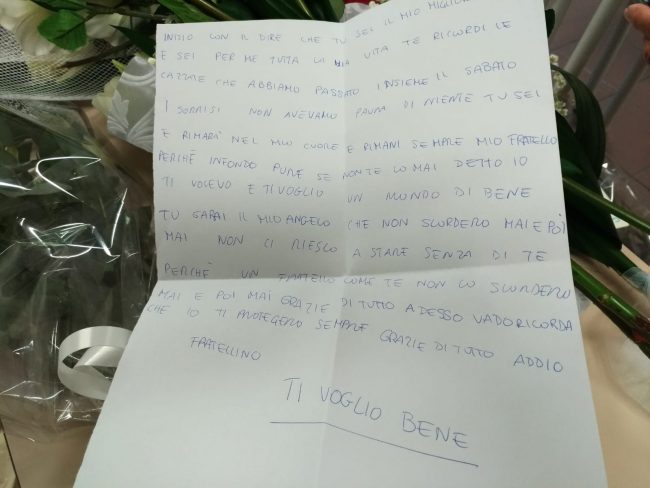 INIZIO CON IL DIRE CHE TU SEI IL MIO MIGLIOR
E SEI PER ME TUTTA LA MIA VITA TE RICORDI LE
CAZZATE CHE ABBIAMO PASSATO INSIEME IL SABATO
I SORRISI NON AVEVAMO PAURA DI NIENTE TU SEI
E RIMARÀ NEL MIO CUORE E RIMANI SEMPRE MIO FRATELLO
PERCHÈ INFONDO PURE SE NON TE LO MAI DETTO IO
TI VOLEVO E TI VOGLIO UN MONDO DI BENE
TU SARAI IL MIO ANGELO CHE NON SCORDERO MAI E POI
MAI NON CI RIESCO A STARE SENZA DI TE
PERCHÈ UN FRATELLO COME TE NON LO SCORDERO
MAI E POI MAI GRAZIE DI TUTTO ADESSO VADO RICORDA
CHE IO TI PROTEGERO SEMPRE GRAZIE DI TUTTO ADDIO
FRATELLINO
TI VOGLIO BENE